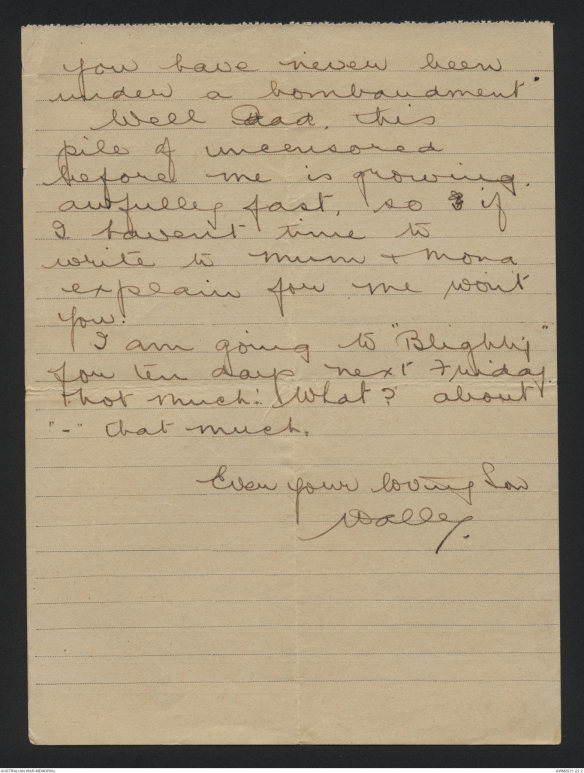 you have never been
under a bombardment.
Well Dad, this
pile of uncensored
before me is growing
awfully fast, so if
I haven't time to
write to Mum & Mona
explain for me wont
you.
I am going to "Blighty"
for ten days next Friday
thot much: What? about
"-" that much.
Ever your loving Son
Wally.
AUSTRALIAN WAR MEMORIAL
AWM2021.22.2